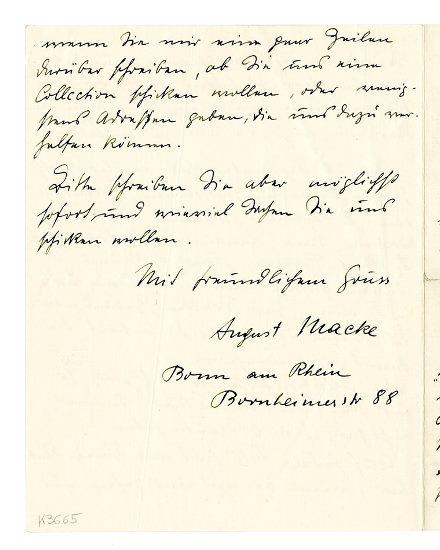 wenn Sie mir eine paar Zeilen
darüber schreiben, ob Sie uns eine
Collection schicken wollen, oder wenig-
stens Adressen geben, die uns dazu ver-
helfen können.
Bitte schreiben Sie aber möglichst
sofort und wieviel Sachen Sie uns
schicken wollen.
Mit freundlichem Gruss
August Macke
Bonn am Rhein
Bornheimerstr 88
K3665